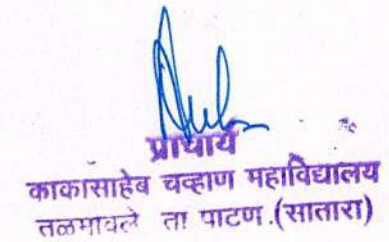 प्राचार्य
काकासाहेब चव्हाण महाविद्यालय
तळमावले ता पाटण.(सातारा)